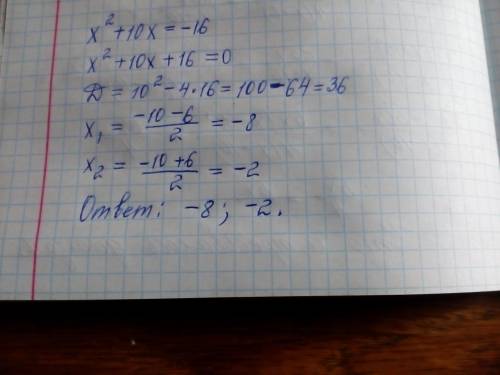 x² + 10x = -16
x² + 10x + 16 = 0
D = 10² - 4·16 = 100 - 64 = 36
x₁ = (-10 - 6)/2 = -8
x₂ = (-10 + 6)/2 = -2
Ответ: -8; -2.